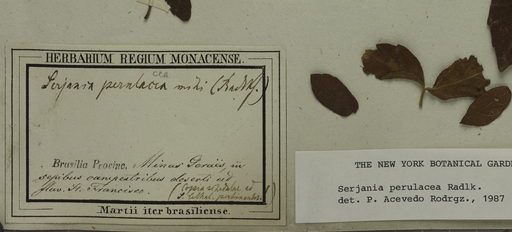 HERBARIUM REGIUM MONACENSE.
cea
Serjania perulacea mihi (Radlk.)
Brasilia Provinc. Minas Geraës, in
sepibus campestribus deserti ad
fluv. St. Francisco.
Martii iter brasiliense.
THE NEW YORK BOTANICAL GARDE
Serjania perulacea Radlk.
det. P. Acevedo Rodrgz., 1987